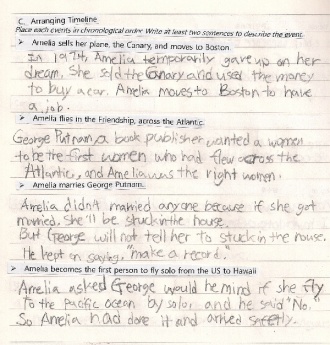 C. Arranging Timeline.
Place each events in chronological order. Write at least two sentences to describe the event.
➤ Amelia sells her plane, the Canary, and moves to Boston.
In 1924, Amelia temporarily gave up on her
dream. She sold the Canary and used the money
to buy a car. Amelia moves to Boston to have
a job.
➤ Amelia flies in the Friendship, across the Atlantic.
George Putnam, a book publisher wanted a women
to be the first women who had flew across the
Atlantic, and Amelia was the right women.
➤ Amelia marries George Putnam.
Amelia didn't married anyone because if she got
married, she'll be stuck in the house.
But George will not tell her to stuck in the house.
He kept on saying, "make a record."
➤ Amelia becomes the first person to fly solo from the US to Hawaii
Amelia asked George would he mind if she fly
to the pacific ocean by solo, and he said "No."
So Amelia had done it and arived safetly.